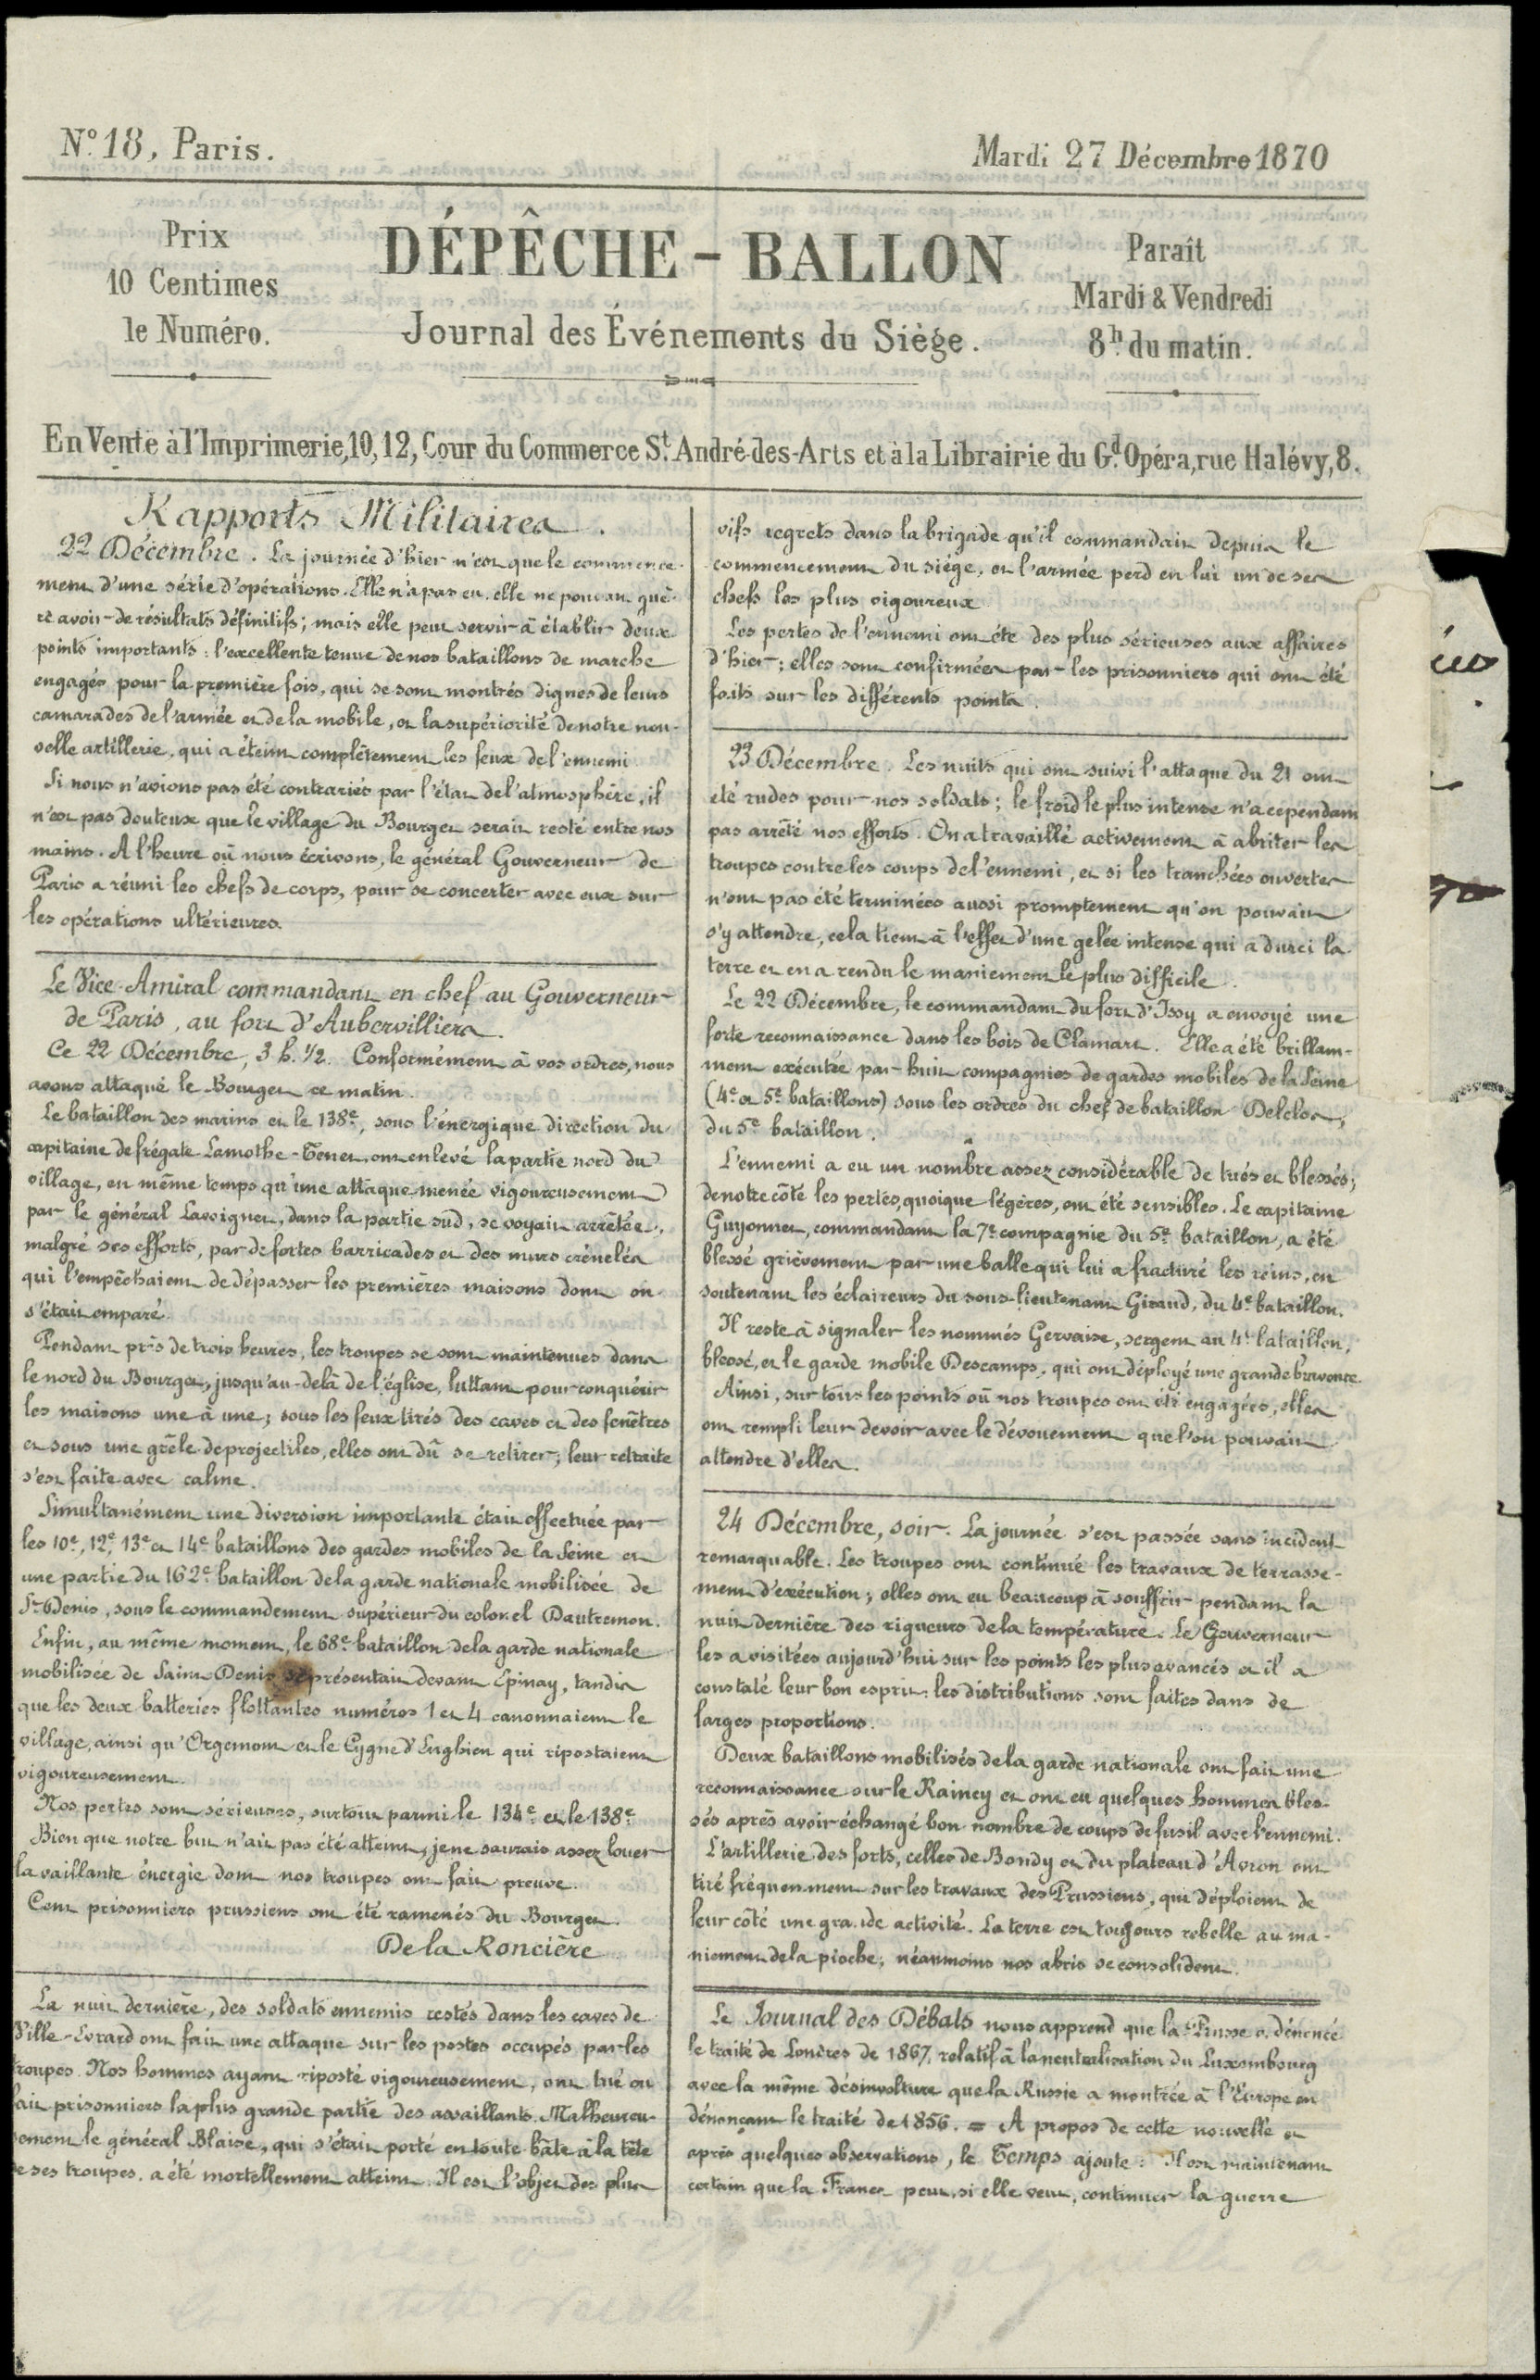 N.° 18, Paris.
Mardi 27 Décembre 1870
Prix
10 Centimes
le Numéro.
DÉPÊCHE - BALLON
Journal des Événements du Siège.
Paraît
Mardi & Vendredi
8h. du matin.
En Vente à l'Imprimerie, 10, 12, Cour du Commerce St. André-des-Arts et à la Librairie du Gd. Opéra, rue Halévy, 8.
Rapports Militaires.
22 Décembre. La journée d'hier n'est que le commence-
ment d'une série d'opérations. Elle n'a pas eu, elle ne pouvait guè-
re avoir de résultats définitifs; mais elle peut servir à établir deux
points importants: l'excellente tenue de nos bataillons de marche
engagés pour la première fois, qui se sont montrés dignes de leurs
camarades de l'armée et de la mobile, et la supériorité de notre nou-
velle artillerie, qui a éteint complètement les feux de l'ennemi
Si nous n'avions pas été contrariés par l'état de l'atmosphère, il
n'est pas douteux que le village du Bourget serait resté entre nos
mains. A l'heure où nous écrivons, le général Gouverneur de
Paris a réuni les chefs de corps, pour se concerter avec eux sur
les opérations ultérieures.
Le Vice-Amiral commandant en chef au Gouverneur
de Paris, au fort d'Aubervilliers.
Ce 22 Décembre, 3 h. 1/2. Conformément à vos ordres, nous
avons attaqué le Bourget ce matin.
Le bataillon des marins et le 138e, sous l'énergique direction du
capitaine de frégate Lamothe-Tenet, ont enlevé la partie nord du
village, en même temps qu'une attaque menée vigoureusement
par le général Lavoignet, dans la partie sud, se voyait arrêtée,
malgré ses efforts, par de fortes barricades et des murs crénelés
qui l'empêchaient de dépasser les premières maisons dont on
s'était emparé.
Pendant près de trois heures, les troupes se sont maintenues dans
le nord du Bourget, jusqu'au-delà de l'église, luttant pour conquérir
les maisons une à une; sous les feux tirés des caves et des fenêtres
et sous une grêle de projectiles, elles ont dû se retirer; leur retraite
s'est faite avec calme.
Simultanément une diversion importante était effectuée par
les 10e, 12e, 13e et 14e bataillons des gardes mobiles de la Seine et
une partie du 162e bataillon de la garde nationale mobilisée de
St-Denis, sous le commandement supérieur du colonel Dautremon.
Enfin, au même moment, le 68e bataillon de la garde nationale
mobilisée de Saint-Denis se présentait devant Epinay, tandis
que les deux batteries flottantes numéros 1 et 4 canonnaient le
village, ainsi qu'Orgemont et le Cygne d'Enghien qui ripostaient
vigoureusement.
Nos pertes sont sérieuses, surtout parmi le 134e et le 138e
Bien que notre but n'ait pas été atteint, je ne saurais assez louer
la vaillante énergie dont nos troupes ont fait preuve.
Cent prisonniers prussiens ont été ramenés du Bourget.
De la Roncière
La nuit dernière, des soldats ennemis restés dans les caves de
Ville-Evrard ont fait une attaque sur les postes occupés par les
troupes. Nos hommes ayant riposté vigoureusement, ont tué ou
fait prisonniers la plus grande partie des assaillants. Malheureu-
sement le général Blaise, qui s'était porté en toute hâte à la tête
de ses troupes, a été mortellement atteint. Il est l'objet des plus
vifs regrets dans la brigade qu'il commandait depuis le
commencement du siège, et l'armée perd en lui un de ses
chefs les plus vigoureux
Les pertes de l'ennemi ont été des plus sérieuses aux affaires
d'hier; elles sont confirmées par les prisonniers qui ont été
faits sur les différents points.
23 Décembre. Les nuits qui ont suivi l'attaque du 21 ont
été rudes pour nos soldats; le froid le plus intense n'a cependant
pas arrêté nos efforts. On a travaillé activement à abriter les
troupes contre les coups de l'ennemi, et si les tranchées ouvertes
n'ont pas été terminées aussi promptement qu'on pouvait
s'y attendre, cela tient à l'effet d'une gelée intense qui a durci la
terre et en a rendu le maniement le plus difficile.
Le 22 Décembre, le commandant du fort d'Issy a envoyé une
forte reconnaissance dans les bois de Clamart. Elle a été brillam-
ment exécutée par huit compagnies de gardes mobiles de la Seine
(4e et 5e bataillons) sous les ordres du chef de bataillon Delclos,
du 5e bataillon.
L'ennemi a eu un nombre assez considérable de tués et blessés;
de notre côté les pertes, quoique légères, ont été sensibles. Le capitaine
Guyonnet, commandant la 7e compagnie du 5e bataillon, a été
blessé grièvement par une balle qui lui a fracturé les reins, en
soutenant les éclaireurs du sous-lieutenant Giraud, du 4e bataillon.
Il reste à signaler les nommés Gervaise, sergent au 4e bataillon,
blessé, et le garde mobile Descamps, qui ont déployé une grande bravoure.
Ainsi, sur tous les points où nos troupes ont été engagées, elles
ont rempli leur devoir avec le dévouement que l'on pouvait
attendre d'elles.
24 Décembre, soir. La journée s'est passée sans incident
remarquable. Les troupes ont continué les travaux de terrasse-
ment d'exécution; elles ont eu beaucoup à souffrir pendant la
nuit dernière des rigueurs de la température. Le Gouverneur
les a visitées aujourd'hui sur les points les plus avancés et il a
constaté leur bon esprit: les distributions sont faites dans de
larges proportions.
Deux bataillons mobilisés de la garde nationale ont fait une
reconnaissance sur le Raincy et ont eu quelques hommes bles-
sés après avoir échangé bon nombre de coups de fusil avec l'ennemi.
L'artillerie des forts, celles de Bondy et du plateau d'Avron ont
tiré fréquemment sur les travaux des Prussiens, qui déploient de
leur côté une grande activité. La terre est toujours rebelle au ma-
niement de la pioche; néanmoins nos abris se consolident.
Le Journal des Débats nous apprend que la Prusse a dénoncé
le traité de Londres de 1867, relatif à la neutralisation du Luxembourg
avec la même désinvolture que la Russie a montrée à l'Europe en
dénonçant le traité de 1856. = A propos de cette nouvelle et
après quelques observations, le Temps ajoute: Il est maintenant
certain que la France peut, si elle veut, continuer la guerre